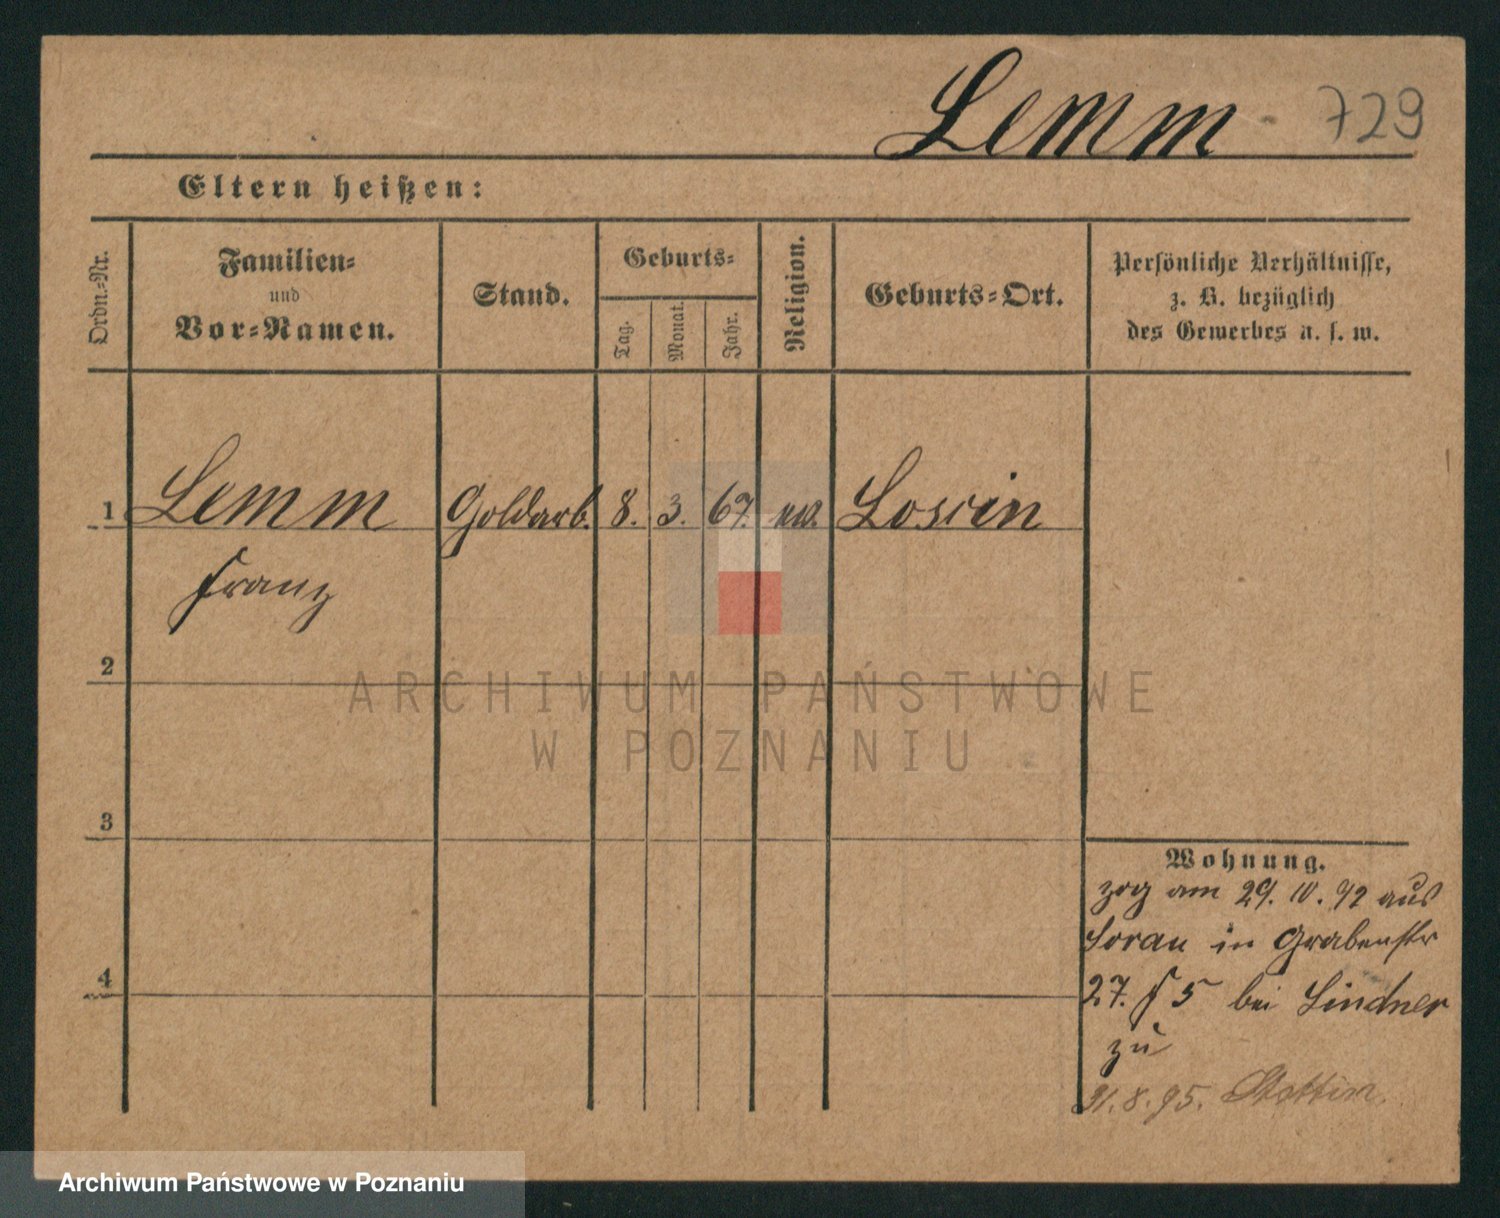 Lemm 729
Eltern heißen:
Ordn.-Nr.
Familien-
und
Vor-Namen.
Stand.
Geburts-
Tag.
Monat.
Jahr.
Religion.
Geburts-Ort.
Persönliche Verhältnisse,
z. B. bezüglich
des Gewerbes u. s. w.
1 Lemm Goldarb. 8. 3. 67. ev. Loscin
Franz
2
3
4
Wohnung.
zog am 29. 10. 92 aus
Sorau in Grabenstr
27. 5 bei Lindner
zu
31.8.95. Stettin.
ARCHIWUM PAŃSTWOWE
W POZNANIU
Archiwum Państwowe w Poznaniu